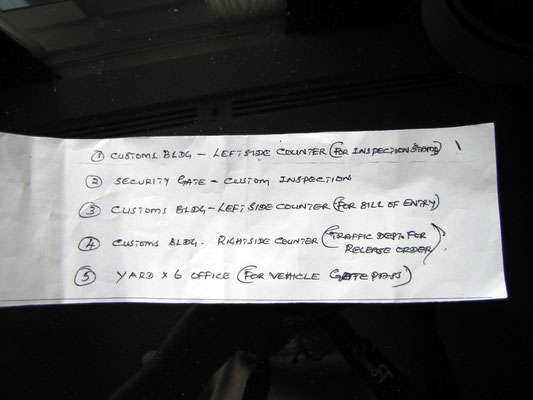 ① CUSTOMS BLDG – LEFTSIDE COUNTER (FOR INSPECTION
② SECURITY GATE – CUSTOM INSPECTION
③ CUSTOMS BLDG – LEFTSIDE COUNTER (FOR BILL OF ENTRY)
④ CUSTOMS BLDG. RIGHTSIDE COUNTER (TRAFFIC DEPT. FOR
RELEASE ORDER)
⑤ YARD X 6 OFFICE (FOR VEHICLE GATE PASS)